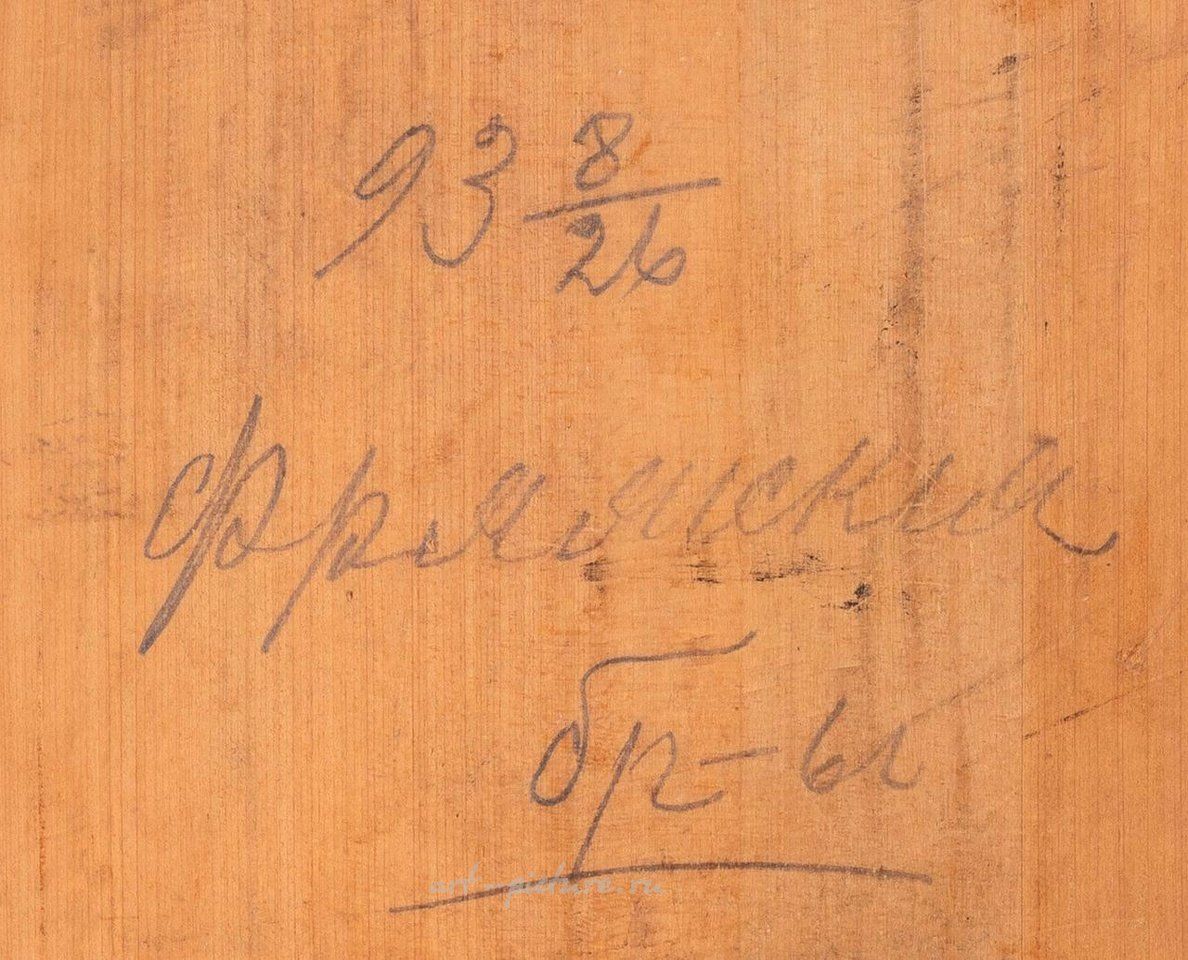 93 8/26
Фряжский
бр-ы
art-picture.ru